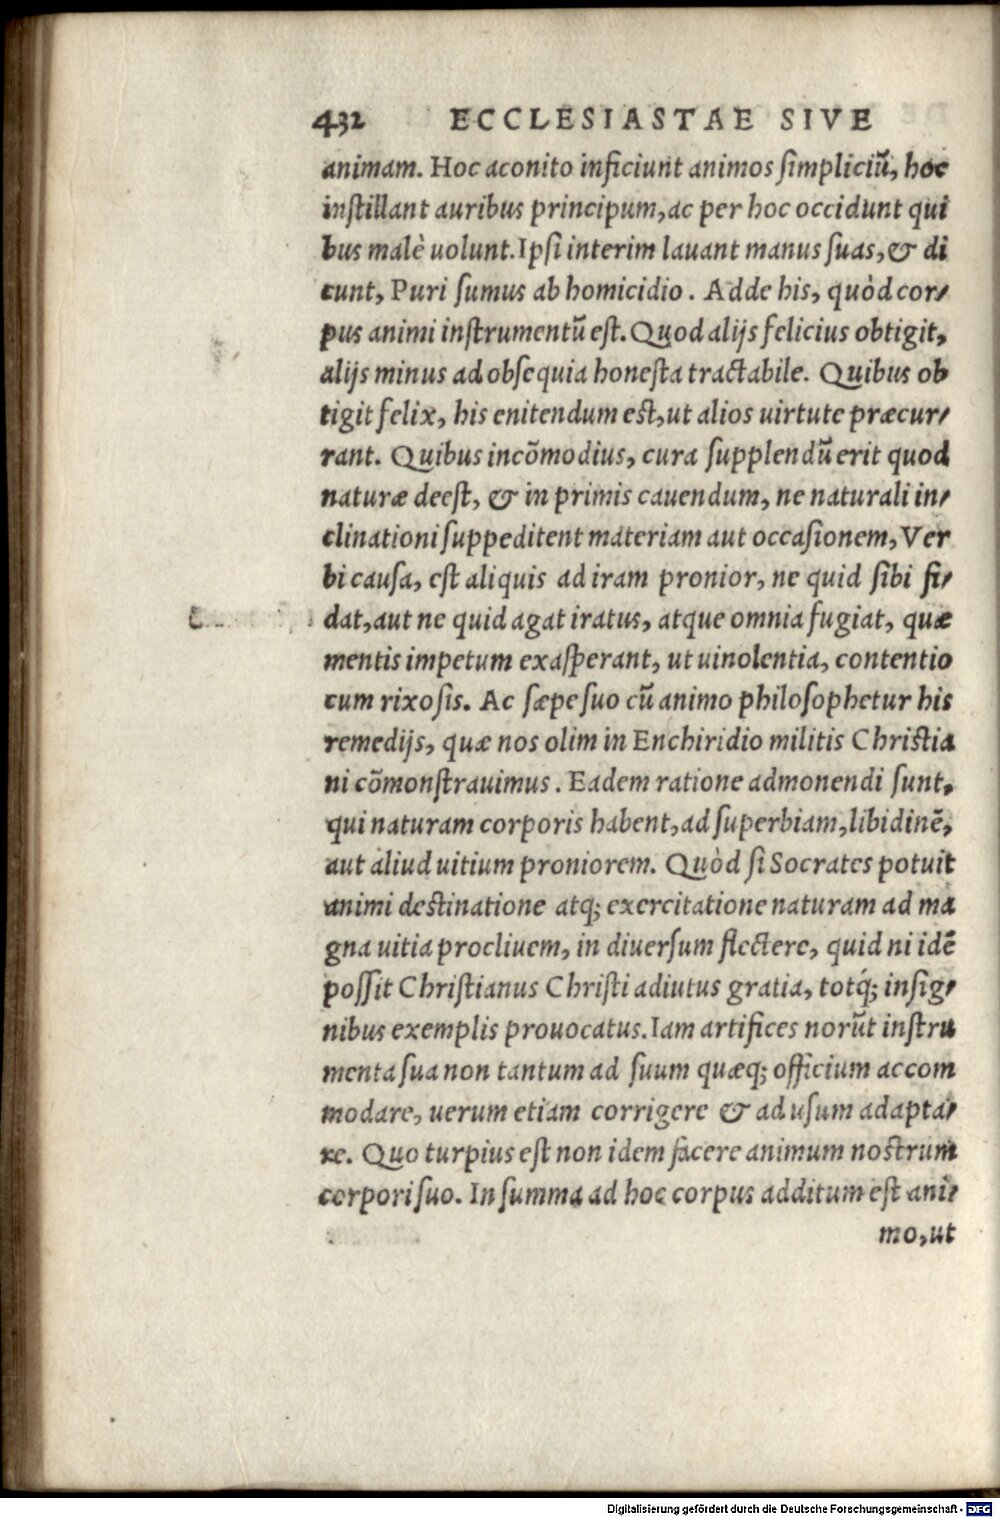 432 ECCLESIASTAE SIVE
animam. Hoc aconito inficiunt animos simpliciũ, hoc
instillant auribus principum, ac per hoc occidunt qui
bus malè uolunt. Ipsi interim lauant manus suas, & di
cunt, Puri sumus ab homicidio. Adde his, quòd cor/
pus animi instrumentũ est. Quod alijs felicius obtigit,
alijs minus ad obsequia honesta tractabile. Quibus ob
tigit felix, his enitendum est, ut alios uirtute præcur/
rant. Quibus incõmodius, cura supplendũ erit quod
naturæ deest, & in primis cauendum, ne naturali in/
clinationi suppeditent materiam aut occasionem, Ver
bi causa, est aliquis ad iram pronior, ne quid sibi fi/
dat, aut ne quid agat iratus, atque omnia fugiat, quæ
mentis impetum exasperant, ut uinolentia, contentio
cum rixosis. Ac sæpe suo cũ animo philosophetur his
remedijs, quæ nos olim in Enchiridio militis Christia
ni cõmonstrauimus. Eadem ratione admonendi sunt,
qui naturam corporis habent, ad superbiam, libidinẽ,
aut aliud uitium proniorem. Quòd si Socrates potuit
animi destinatione atq; exercitatione naturam ad ma
gna uitia procliuem, in diuersum flectere, quid ni idẽ
possit Christianus Christi adiutus gratia, totq́; insig/
nibus exemplis prouocatus. Iam artifices norũt instru
menta sua non tantum ad suum quæq; officium accom
modare, uerum etiam corrigere & ad usum adapta/
re. Quo turpius est non idem facere animum nostrum
corpori suo. In summa ad hoc corpus additum est ani/
mo, ut
Digitalisierung gefördert durch die Deutsche Forschungsgemeinschaft - DFG